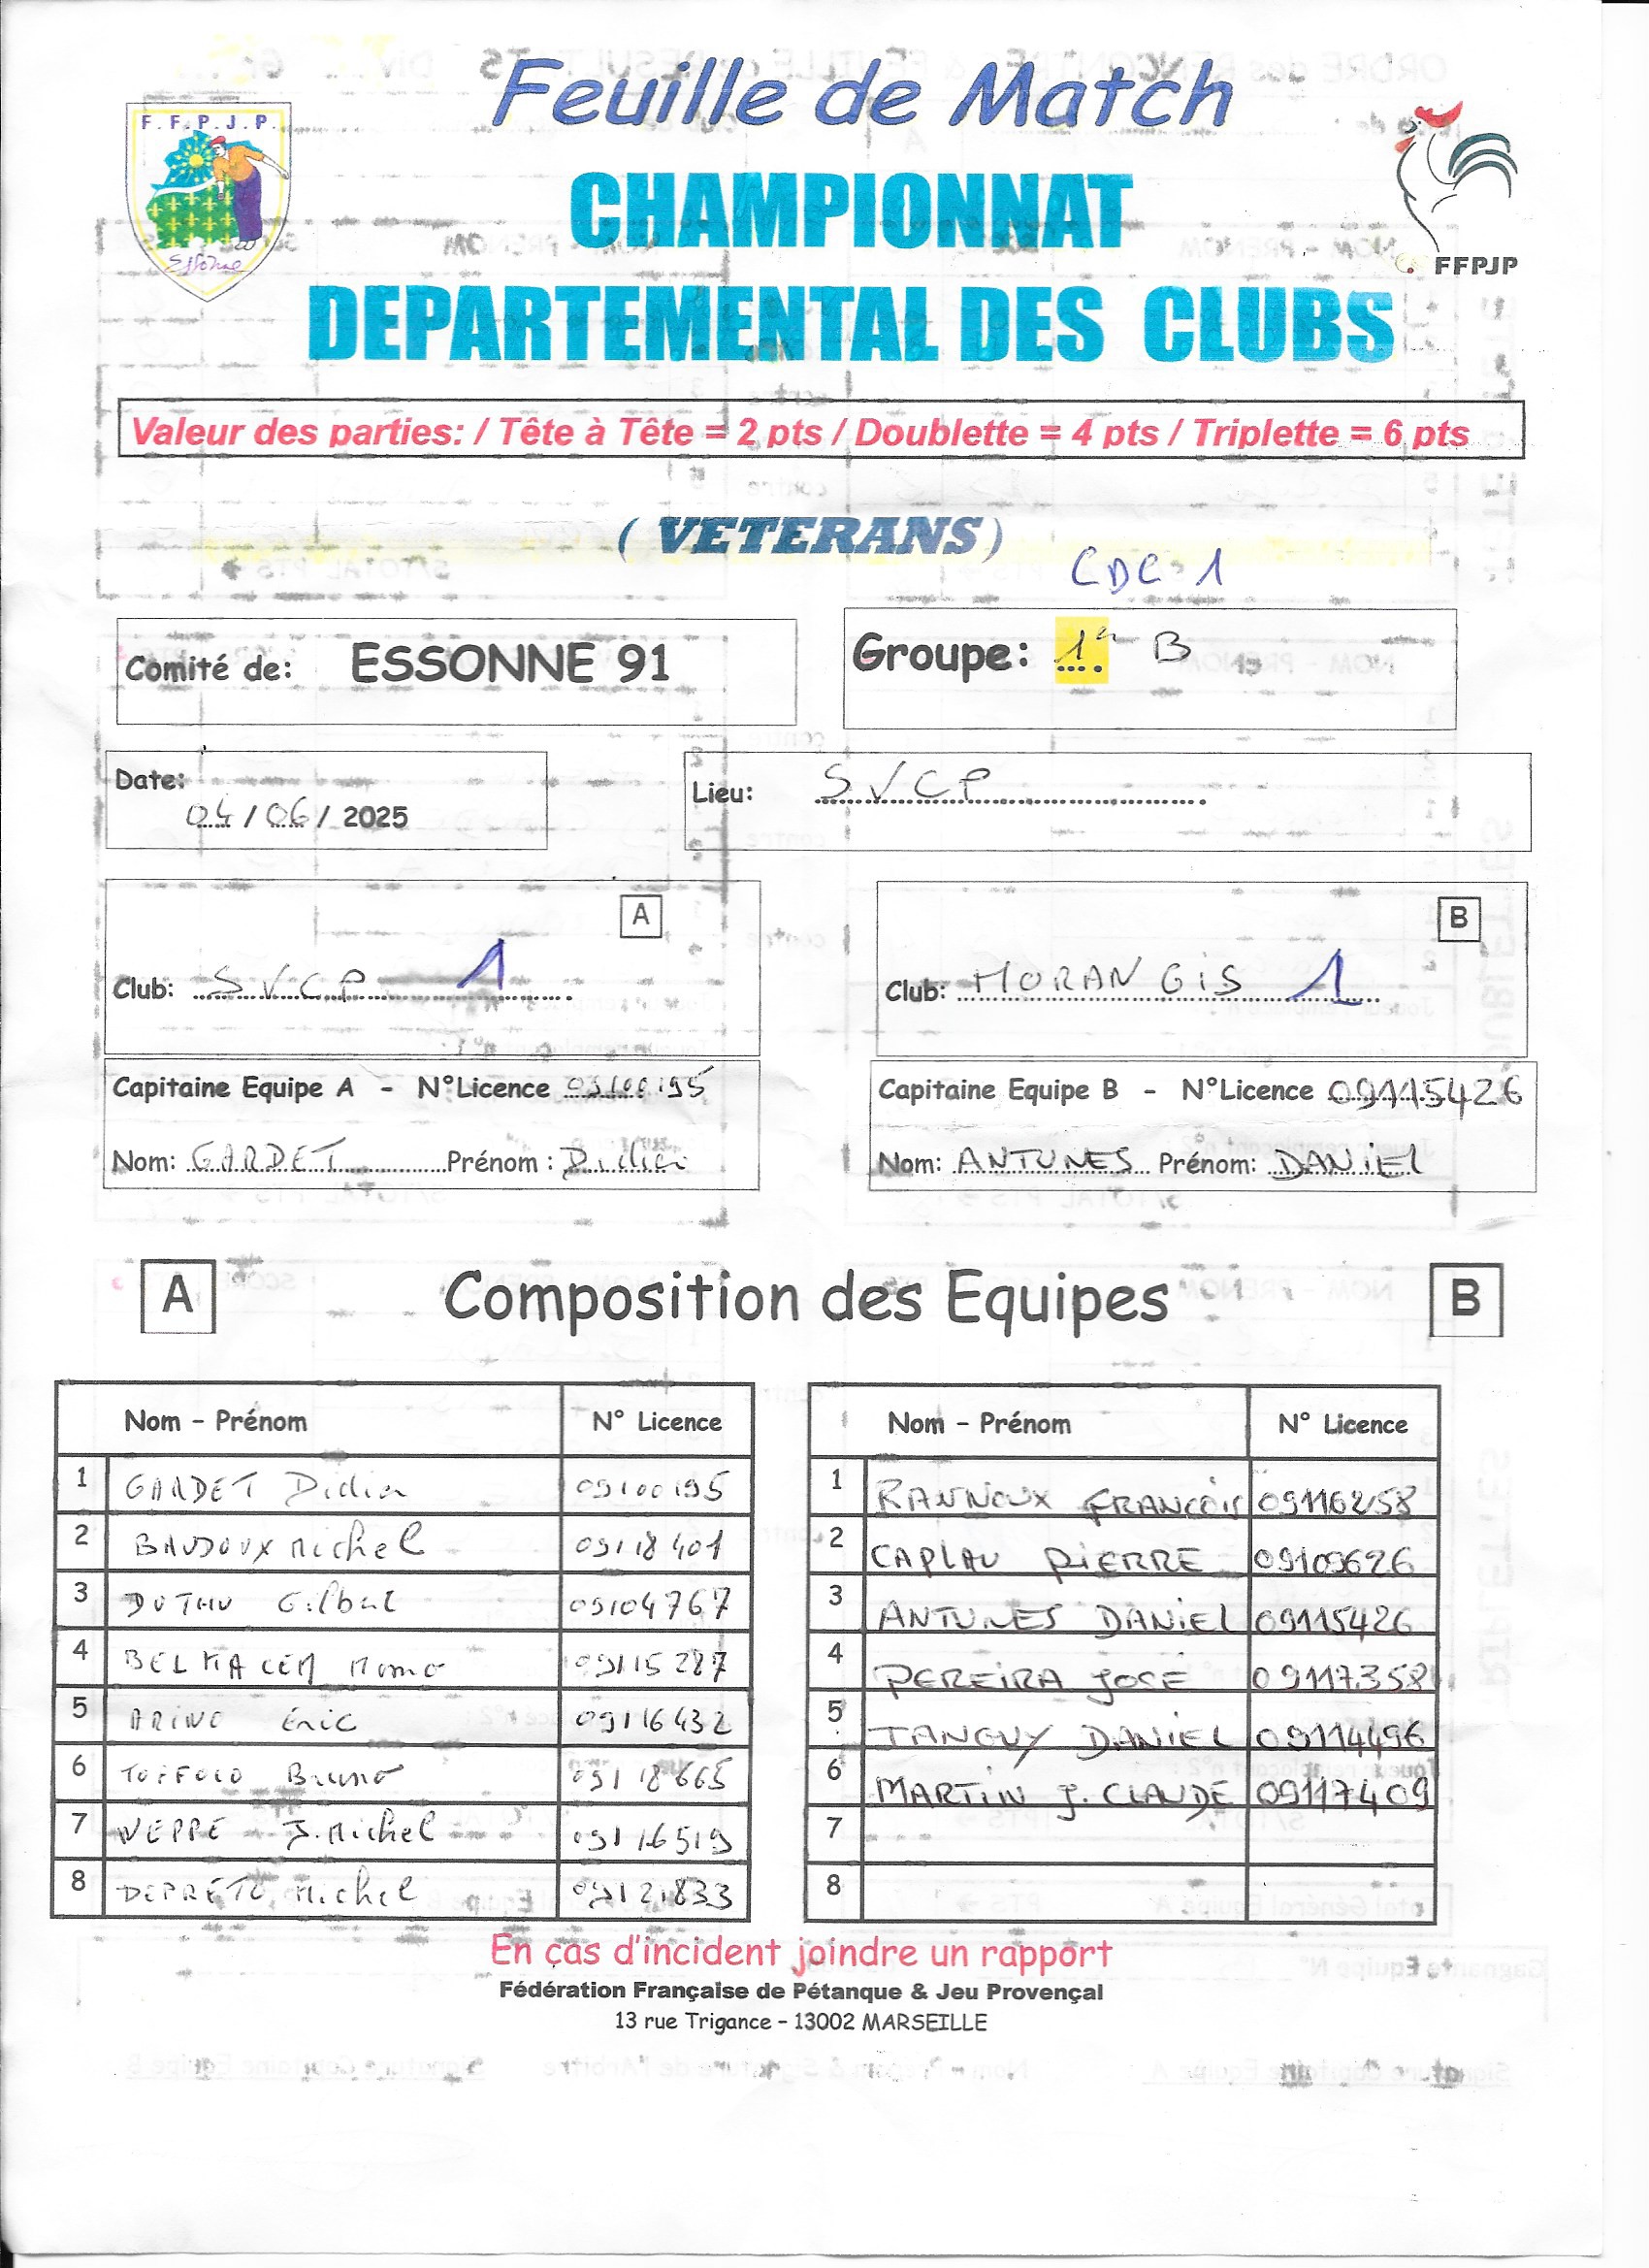 Feuille de Match
F.F.P.J.P.
Essonne
CHAMPIONNAT
FFPJP
DEPARTEMENTAL DES CLUBS
Valeur des parties: / Tête à Tête = 2 pts / Doublette = 4 pts / Triplette = 6 pts
( VETERANS)
CDC 1
Comité de: ESSONNE 91
Groupe: 1 B
Date:
04/06/2025
Lieu: SVCP
A
B
Club: SVCP 1
Club: MORANGIS 1
Capitaine Equipe A - N°Licence 09100195
Capitaine Equipe B - N°Licence 09115426
Nom: GARDET Prénom : Didier
Nom: ANTUNES Prénom: DANIEL
A Composition des Equipes B
Nom - Prénom N° Licence
1 GARDET Didier 09100195
2 BAUDOUX Michel 09118401
3 DUTHU Gilbert 09104767
4 BELKACEM Momo 09115287
5 ARINO Éric 09116432
6 TOFFOLO Bruno 09118665
7 WEPPE J.Michel 09116519
8 DEPRETO Michel 09121833
Nom - Prénom N° Licence
1 RANNOUX FRANCOIS 09116258
2 CAPLAU PIERRE 09109626
3 ANTUNES DANIEL 09115426
4 PEREIRA JOSE 09117358
5 TANGUY DANIEL 09114496
6 MARTIN J. CLAUDE 09117409
7
8
En cas d'incident joindre un rapport
Fédération Française de Pétanque & Jeu Provençal
13 rue Trigance - 13002 MARSEILLE